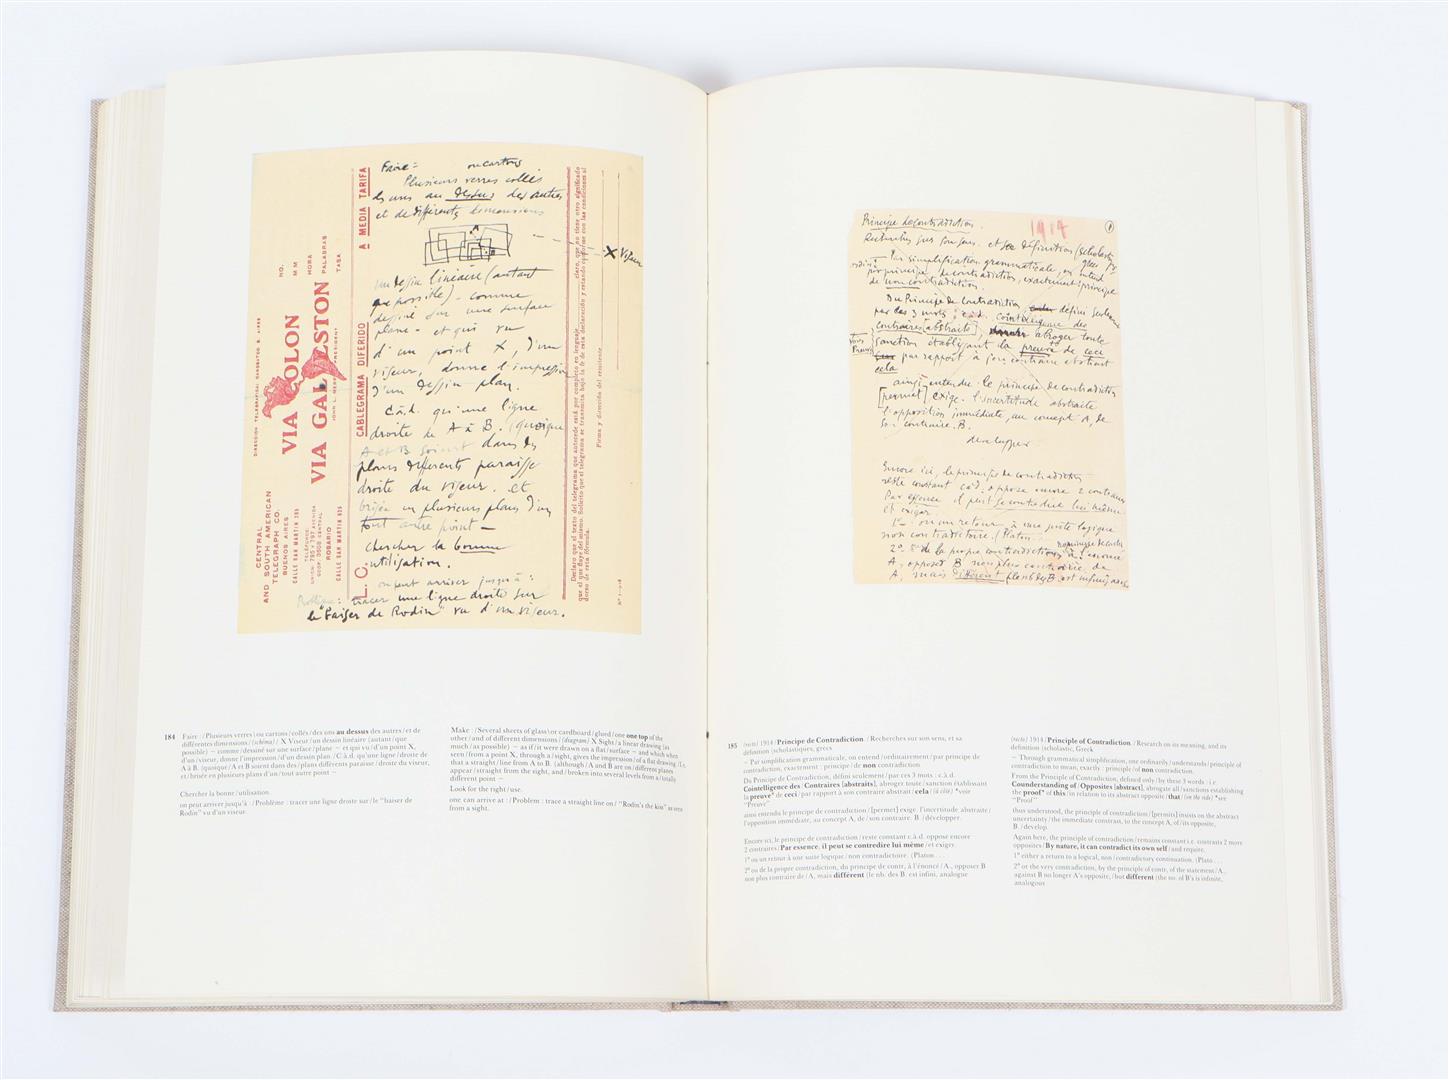 Faire: ou cartons
Plusieurs verres collés
les uns au dessus des autres
et de différentes dimensions
X Viseur
un dessin linéaire (autant
que possible) – comme
dessiné sur une surface
plane – et qui vu
d'un point X, d'un
viseur, donne l'impression
d'un dessin plan.
C.à.d. qu'une ligne
droite de A à B. (quoique
A et B soient dans des
plans différents paraisse
droite du viseur. et
brisée en plusieurs plans d'un
tout autre point –
Chercher la bonne
utilisation.
on peut arriver jusqu'à :
Problème : tracer une ligne droite sur
le "Baiser de Rodin" vu d'un viseur.
CENTRAL
AND SOUTH AMERICAN
TELEGRAPH CO.
BUENOS AIRES
CALLE SAN MARTIN
ROSARIO
VIA COLON
VIA GALVESTON
NO.
MM
HORA
PALABRAS
TASA
L. C. CABLEGRAMA DIFERIDO A MEDIA TARIFA
Firma y dirección del remitente
1914
Principe de contradiction.
Recherches sur son sens. et sa définition (scholastiques
grecs
Par simplification grammaticale, on entend
ordint
par principe de contradiction, exactement : principe
de non contradiction.
Du Principe de Contradiction, défini seulement
par ces 3 mots : c.à.d. cointelligence des
contraires [abstraits] abroger toute
sanction établissant la preuve de ceci
par rapport à son contraire abstrait
cela
Voir
Preuve
ainsi entendu le principe de contradiction
[permet] exige l'incertitude abstraite
l'opposition immédiate, au concept A, de
son contraire B.
développer
Encore ici, le principe de contradiction
reste constant càd. oppose encore 2 contraires
Par essence il peut se contredire lui même
et exiger
1° ou un retour à une suite logique
non contradictoire. (Platon
2° ou de la propre contradiction
A, opposer B non plus contraire de
A, mais différent
184 Faire : / Plusieurs verres \ ou cartons / collés / des uns au dessus des autres / et de
différentes dimensions / (schéma) / X Viseur / un dessin linéaire (autant / que
possible) – comme / dessiné sur une surface / plane – et qui vu / d'un point X,
d'un viseur, donne l'impression / d'un dessin plan. / C.à.d. qu'une ligne / droite de
A à B. / (quoique / A et B soient dans des / plans différents paraisse / droite du viseur,
et / brisée en plusieurs plans d'un / tout autre point –
Chercher la bonne / utilisation.
on peut arriver jusqu'à : / Problème : tracer une ligne droite sur / le "baiser de
Rodin" vu d'un viseur.
Make : / Several sheets of glass \ or cardboard / glued / one one top of the
other / and of different dimensions / (diagram) / X Sight / a linear drawing (as
much / as possible) – as if / it were drawn on a flat / surface – and which when
seen / from a point X, through a / sight, gives the impression / of a flat drawing. / I.e.
that a straight / line from A to B. (although / A and B are on / different planes
appear / straight from the sight, and / broken into several levels from a / totally
different point –
Look for the right / use.
one can arrive at : / Problem : trace a straight line on / "Rodin's the kiss" as seen
from a sight.
185 (recto) 1914 / Principe de Contradiction. / Recherches sur son sens, et sa
définition (scholastiques, grecs
– Par simplification grammaticale, on entend / ordinairement / par principe de
contradiction, exactement : principe / de non contradiction
Du Principe de Contradiction, défini seulement / par ces 3 mots : c.à.d.
Cointelligence des / Contraires [abstraits], abroger toute / sanction établissant
la preuve* de ceci / par rapport à son contraire abstrait / cela / (à côté) *voir
"Preuve"
ainsi entendu le principe de contradiction / [permet] exige. l'incertitude abstraite /
l'opposition immédiate, au concept A, de / son contraire. B. / développer.
Encore ici, le principe de contradiction / reste constant c.à.d. oppose encore
2 contraires. / Par essence, il peut se contredire lui même / et exiger.
1° ou un retour à une suite logique / non contradictoire. (Platon . . .
2° ou de la propre contradiction, du principe de contr, à l'énoncé / A., opposer B
non plus contraire de / A, mais différent (le nb. des B. est infini, analogue
(recto) 1914 / Principle of Contradiction. / Research on its meaning, and its
definition (scholastic, Greek
– Through grammatical simplification, one ordinarily / understands / principle of
contradiction to mean, exactly : principle / of non contradiction.
From the Principle of Contradiction, defined only / by these 3 words : i.e
Counderstanding of / Opposites [abstract], abrogate all / sanctions establishing
the proof* of this / in relation to its abstract opposite / that / (on the side) *see
"Proof"
thus understood, the principle of contradiction / [permits] insists on the abstract
uncertainty / the immediate constrast, to the concept A, of / its opposite,
B. / develop.
Again here, the principle of contradiction / remains constant i.e. contrasts 2 more
opposites / By nature, it can contradict its own self / and require.
1° either a return to a logical, non / contradictory continuation. (Plato . . .
2° or the very contradiction, by the principle of contr, of the statement / A.,
against B no longer A's opposite, / but different (the no. of B's is infinite,
analogous